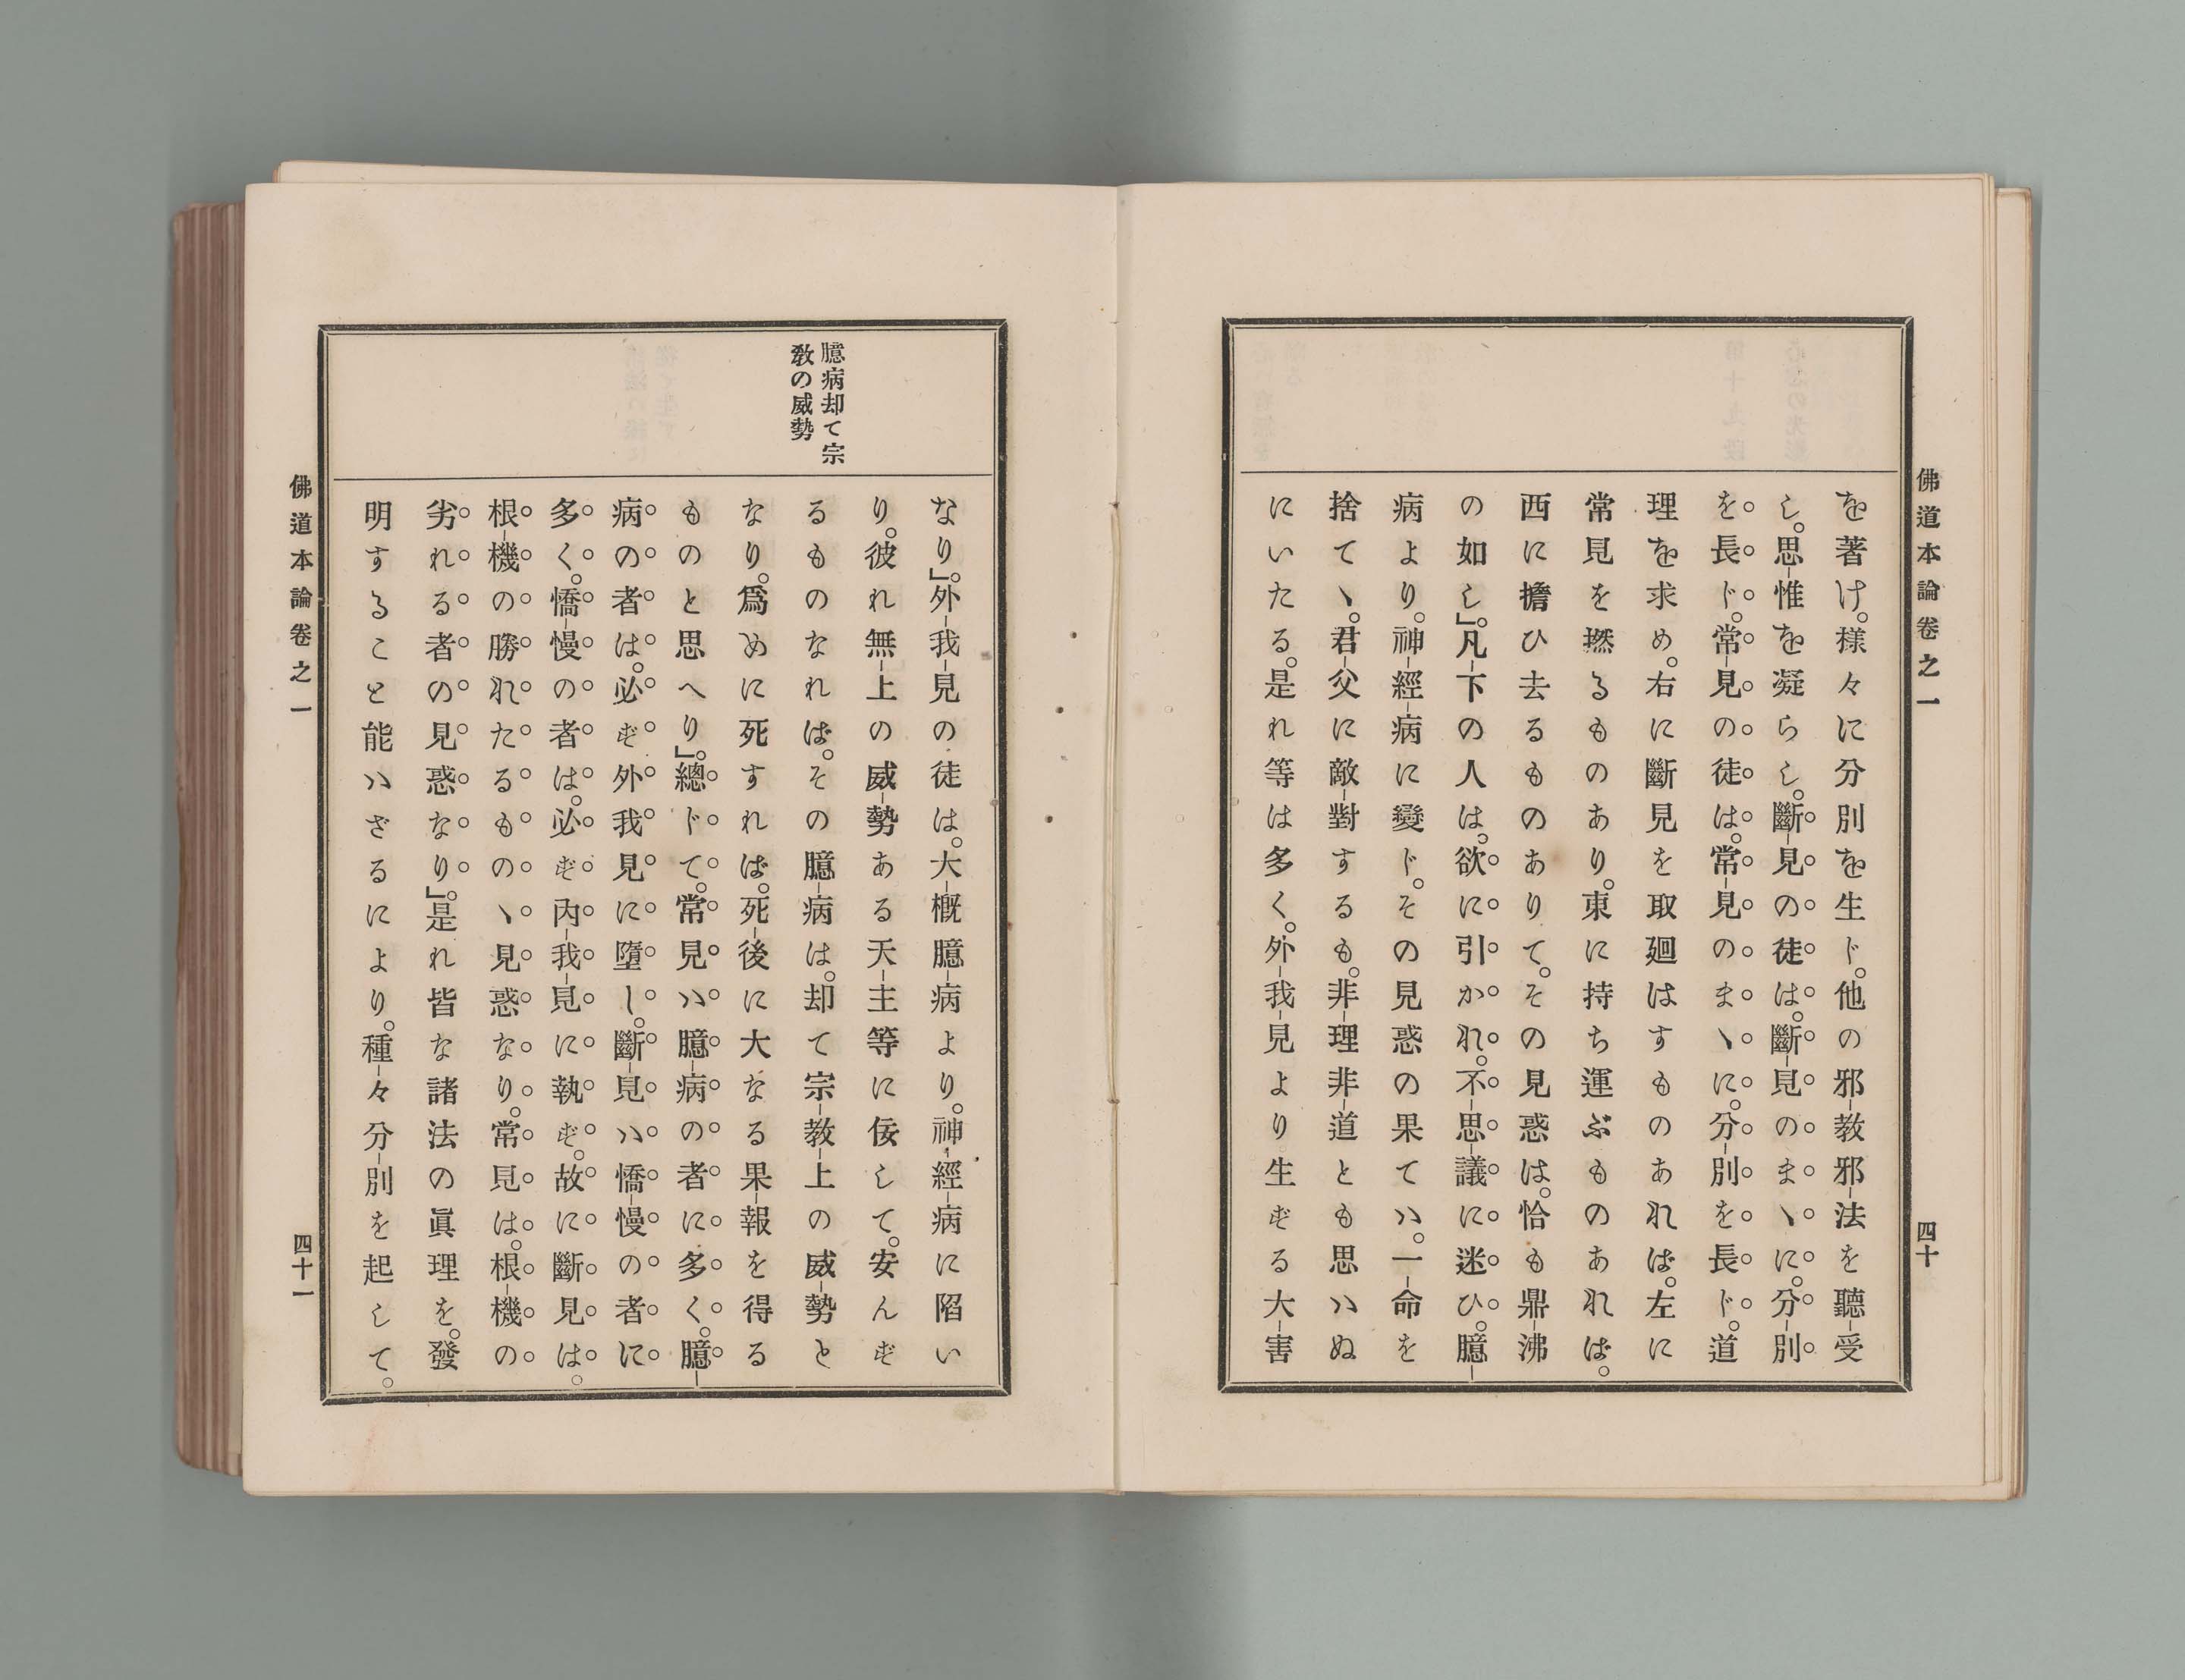 佛道本論卷之一
四十
を著け。様々に分別を生ド。他の邪教邪法を聽受
し。思惟を凝らし。斷見の徒は。斷見のまヽに。分別
を長ド。常見の徒は。常見のまヽに。分別を長ド。道
理を求め。右に斷見を取廻はすものあれば。左に
常見を撚るものあり。東に持ち運ぶものあれば。
西に擔ひ去るものありて。その見惑は。恰も鼎沸
の如し」。凡下の人は。欲に引かれ。不思議に迷ひ。臆
病より。神經病に變ド。その見惑の果てハ。一命を
捨てヽ。君父に敵對するも。非理非道とも思ハぬ
にいたる。是れ等は多く。外我見より生ずる大害
臆病却て宗
教の威勢
なり」。外我見の徒は。大概臆病より。神經病に陷い
り。彼れ無上の威勢ある天主等に侫して。安んず
るものなれば。その臆病は。却て宗教上の威勢と
なり。爲めに死すれば。死後に大なる果報を得る
ものと思へり」。總ドて。常見ハ臆病の者に多く。臆
病の者は。必ず外我見に墮し。斷見ハ憍慢の者に
多く。憍慢の者は。必ず內我見に執ず。故に斷見は。
根機の勝れたるものヽ見惑なり。常見は。根機の
劣れる者の見惑なり」。是れ皆な諸法の眞理を。發
明すること能ハざるにより。種々分別を起して。
佛道本論卷之一
四十一